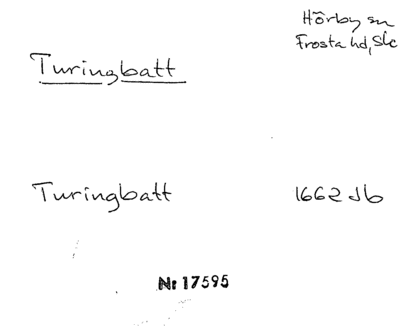 Hörby sn
Frosta hd, Sk
Turingbatt
Turingbatt 1662 Jb
Nr 17595